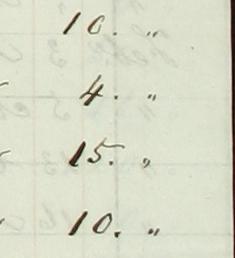 10. "
4. "
15. "
10. "